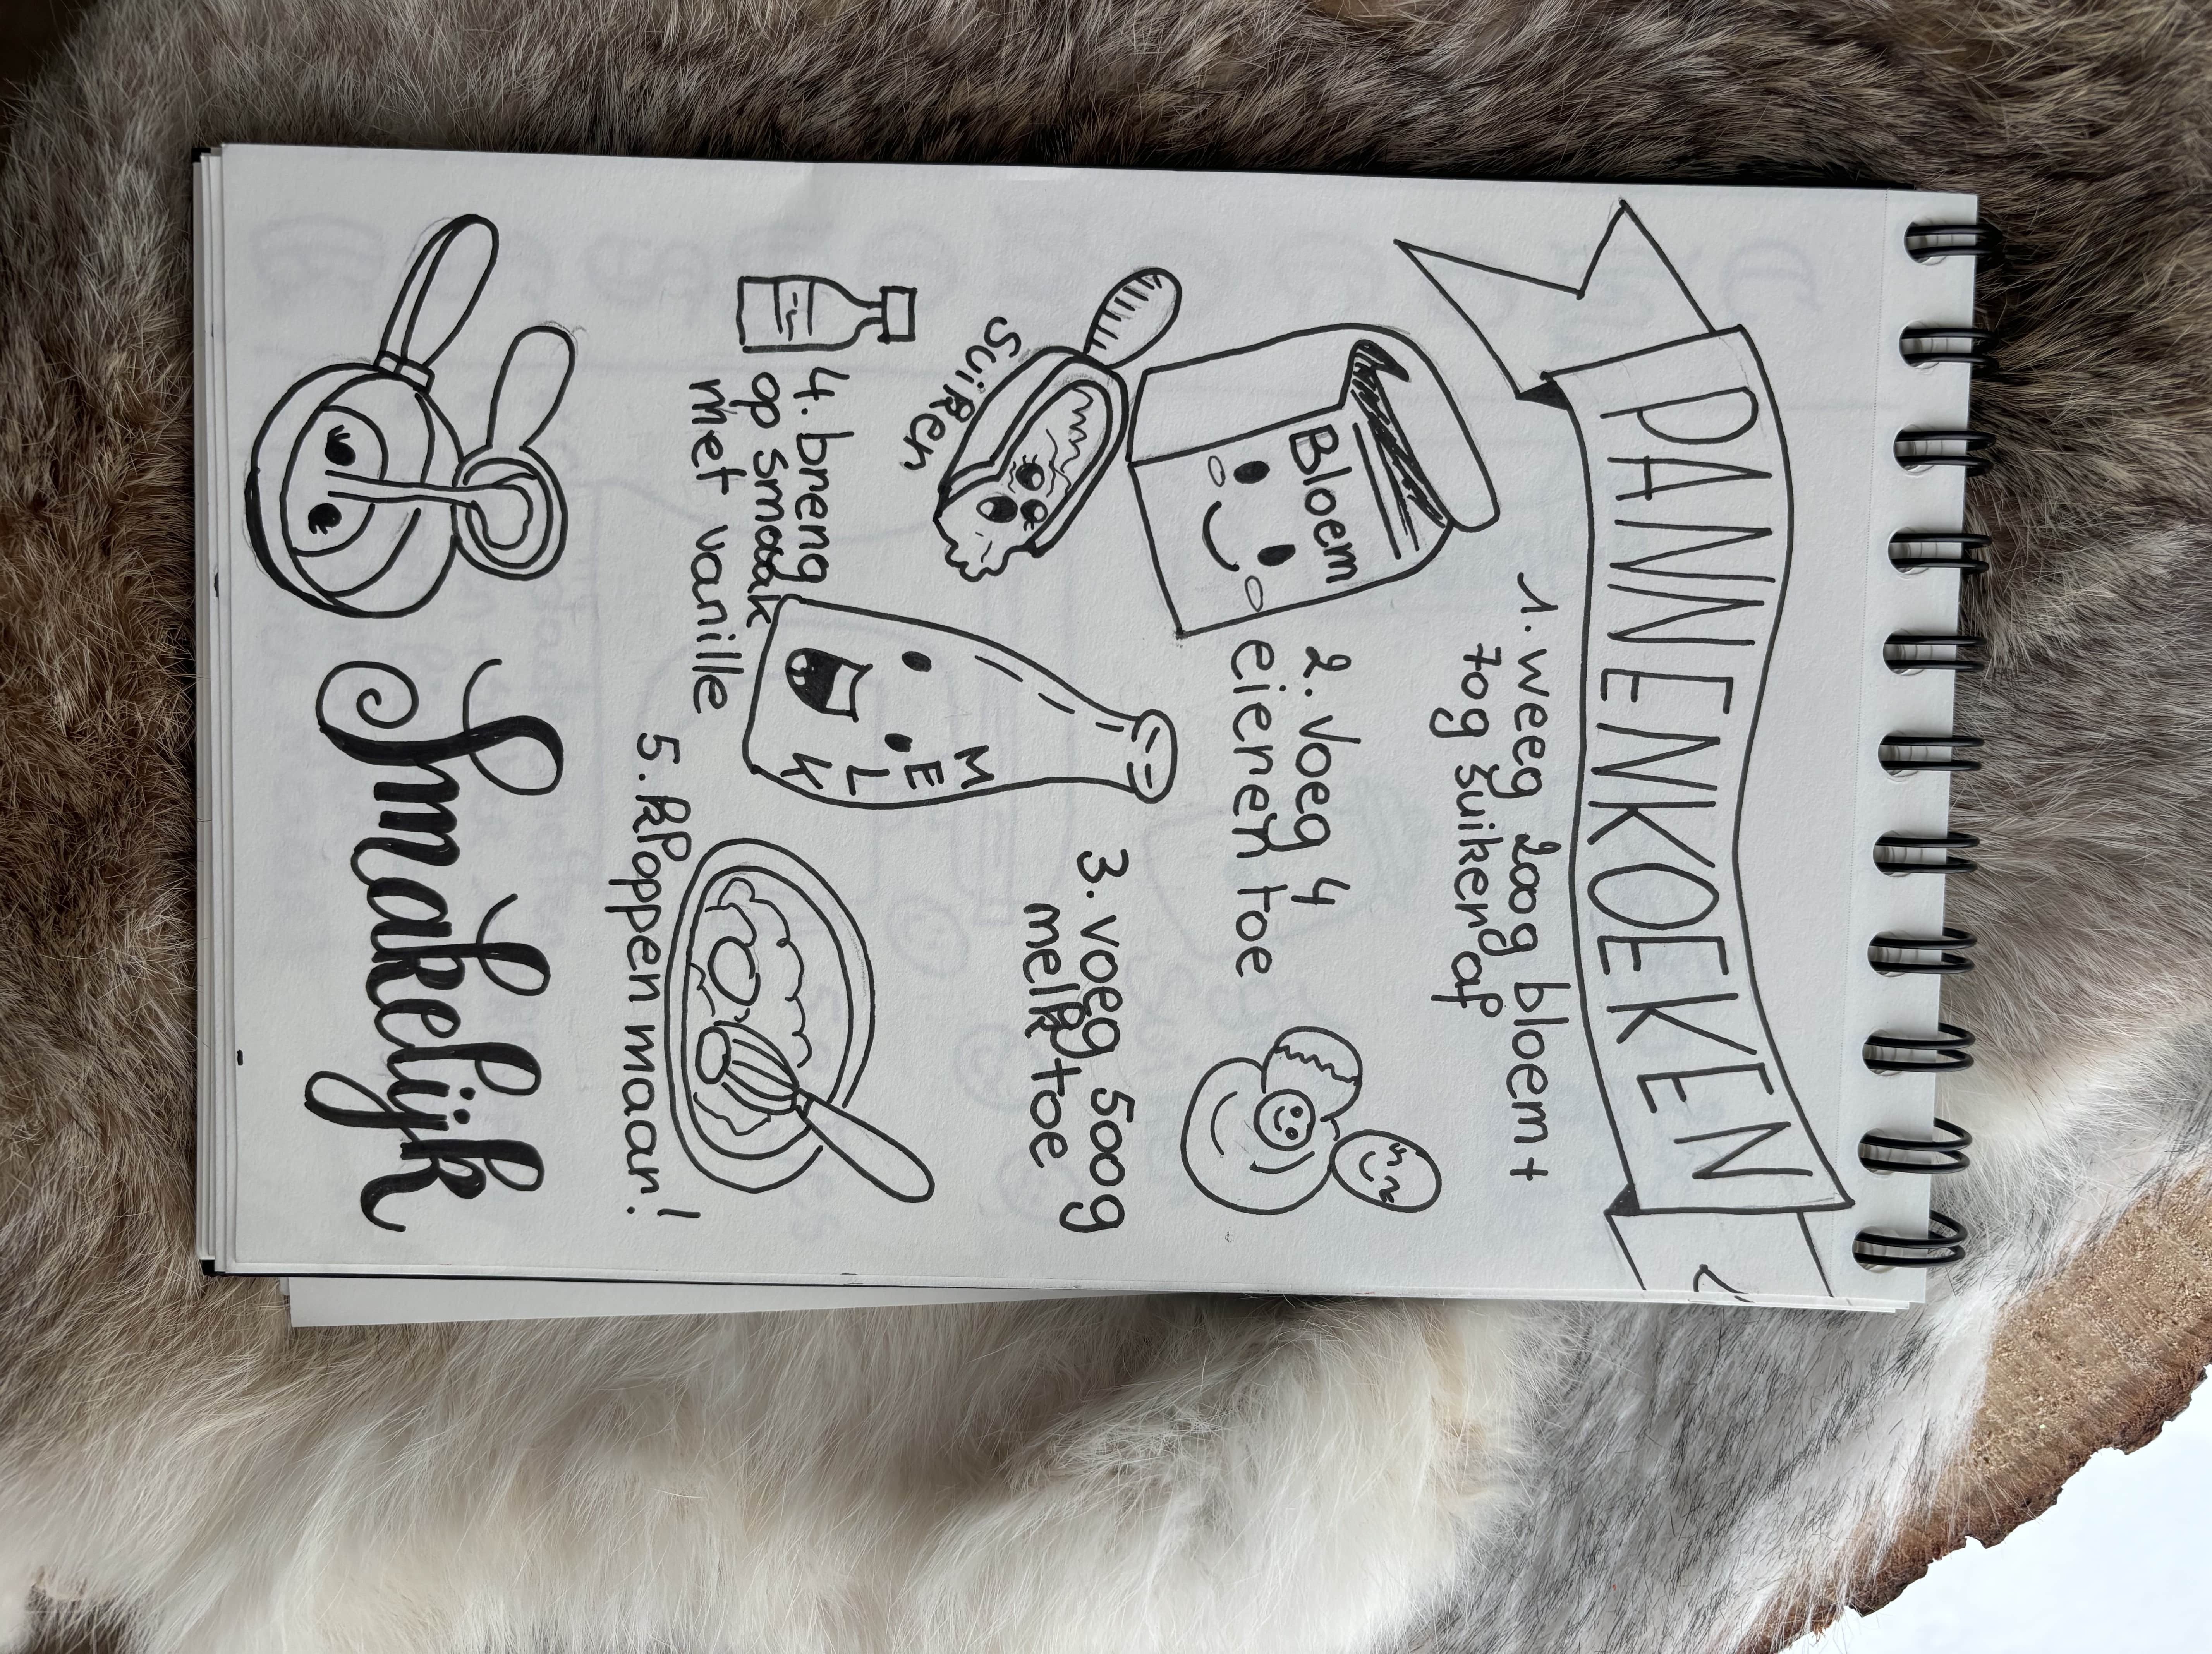 PANNENKOEKEN
1. weeg 200g bloem +
70g suiker af
Bloem
2. Voeg 4
eieren toe
Suiker
3. voeg 500g
melk toe
MELK
4. breng
op smaak
met vanille
5. kloppen maar!
Smakelijk